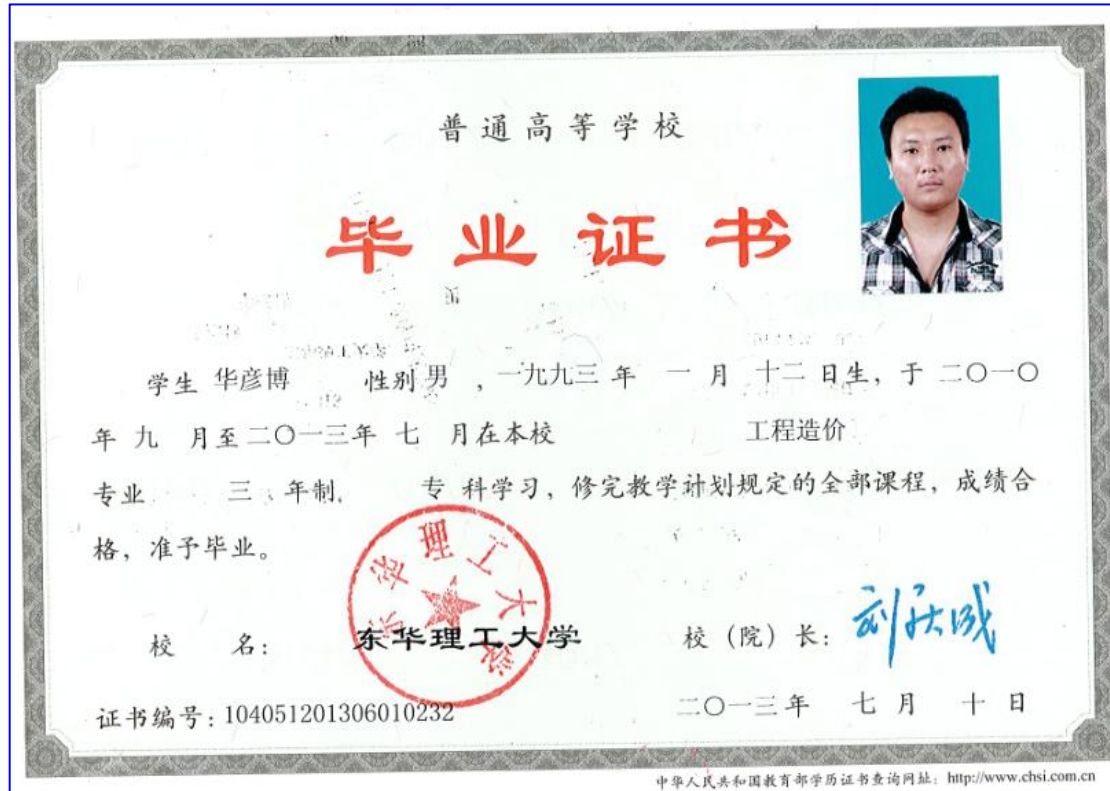 普通高等学校
毕业证书
学生 华彦博 性别 男 , 一九九三 年 一 月 十二 日生, 于 二〇一〇
年 九 月至 二〇一三年 七 月在本校 工程造价
专业 三 年制, 专 科学习, 修完教学计划规定的全部课程, 成绩合
格, 准予毕业。
东华理工大学
校 名: 东华理工大学 校 (院) 长: 刘庆成
证书编号: 104051201306010232 二〇一三年 七 月 十 日
中华人民共和国教育部学历证书查询网址: http://www.chsi.com.cn